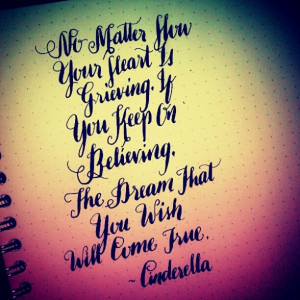 No Matter How
Your Heart Is
Grieving. If
You Keep On
Believing.
The Dream That
You Wish
Will Come True.
~ Cinderella